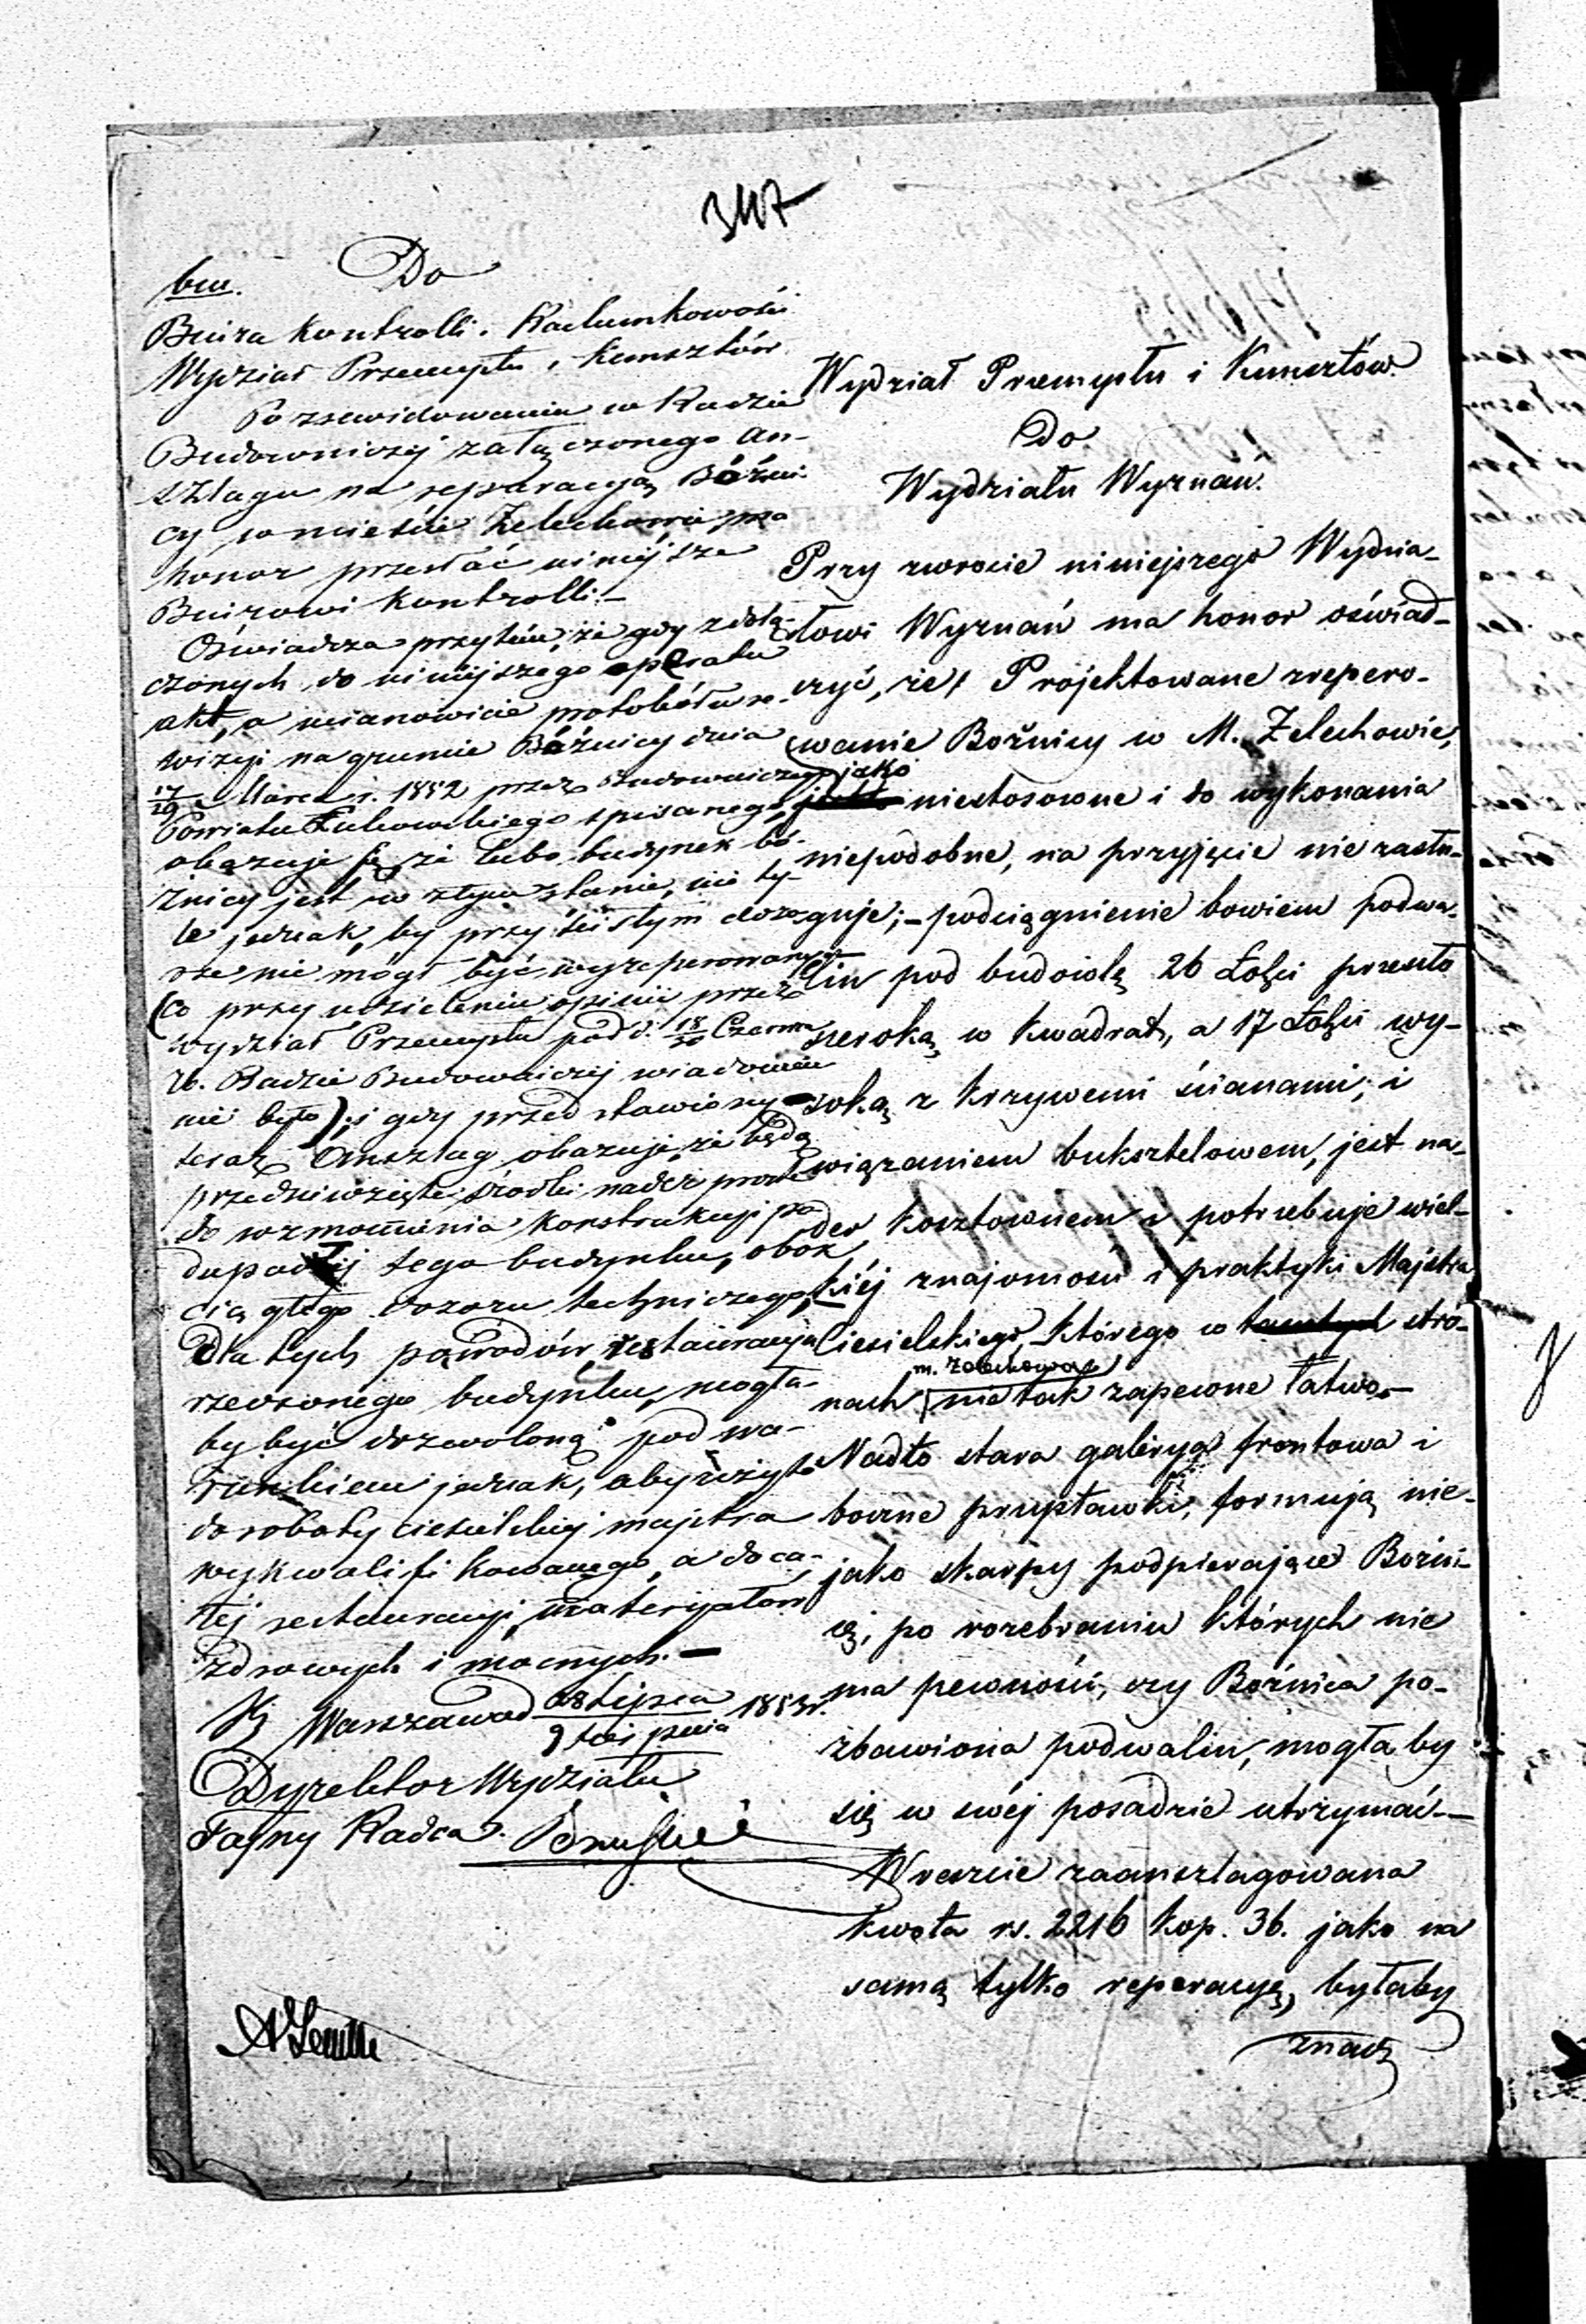 347
bm.
Do
Biura Kontrolli i Rachunkowości
Wydział Przemysłu i Kunsztów
Po zrewidowaniu w Radzie
Budowniczej załączonego an-
szlagu na reparacyą Bóżni-
cy w mieście Żelechowie, ma
honor przesłać niniejsze
Biurowi Kontrolli.—
Oświadcza przytém, że gdy z dołą-
czonych do niniejszego operatu
akt, a mianowicie protokółu re-
wizyi na gruncie Bóżnicy dnia
17/29 Marca r. 1852 przez Budowniczego
Powiatu Łukowskiego spisanego,
okazuje się, że lubo budynek bó-
żnicy jest w złym stanie, nie ty-
le jednak, by przy ścisłym dozo-
rze nie mógł być wyreperowanym
(co przy udzieleniu opinii przez
wydział Przemysłu pod d. 18/30 Czerwca
r b. Radzie Budowniczej wiadomem
nie było); i gdy przedstawiony
teraz Anszlag okazuje, że będą
przedsięwzięte środki nader proste
do wzmocnienia konstrukcyi po-
dupadłéj tego budynku, obok
ciągłego dozoru technicznego,
Dla tych powodów, restauracya
rzeczonego budynku, mogła-
by być dozwoloną pod wa-
runkiem jednak, aby użyto
do roboty ciesielskiej majstra
wykwalifikowanego, a do ca-
łej restauracyi, materyałów
zdrowych i mocnych.—
w Warszawie d 28 Lipca / 9 Sierpnia 1853 r.
Dyrektor Wydziału
Tajny Radca
Wydział Przemysłu i Kunsztów
Do
Wydziału Wyznań.
Przy zwrocie niniejszego Wydzia-
łowi Wyznań ma honor oświad-
czyć, że Projektowane zrepero-
wanie Bożnicy w M. Zelechowie,
jako niestosowne i do wykonania
niepodobne, na przyjęcie nie zasłu-
guje;— podciągnienie bowiem podwa-
lin pod budowlę 26 Łokci przeszło
szeroką w kwadrat, a 17 Łokci wy-
soką z krzywemi ścianami, i
wiązaniem buksztelowem, jest na-
der kosztownem i potrzebuje wiel-
kiéj znajomości i praktyki Majstra
Ciesielskiego, którego w tamtych stro-
m. Zelechowie
nach nie tak zapewne łatwo.—
Nadto stara galerya frontowa i
boczne przystawki, formują nie-
jako skarpy podpierające Bożni-
cę, po rozebraniu których nie
ma pewności, czy Bożnica po-
zbawiona podwalin, mogła by
się w swéj posadzie utrzymać.—
Wreszcie zaanszlagowana
kwota rs. 2216 kop. 36. jako na
samą tylko reperacyę, byłaby
znacz